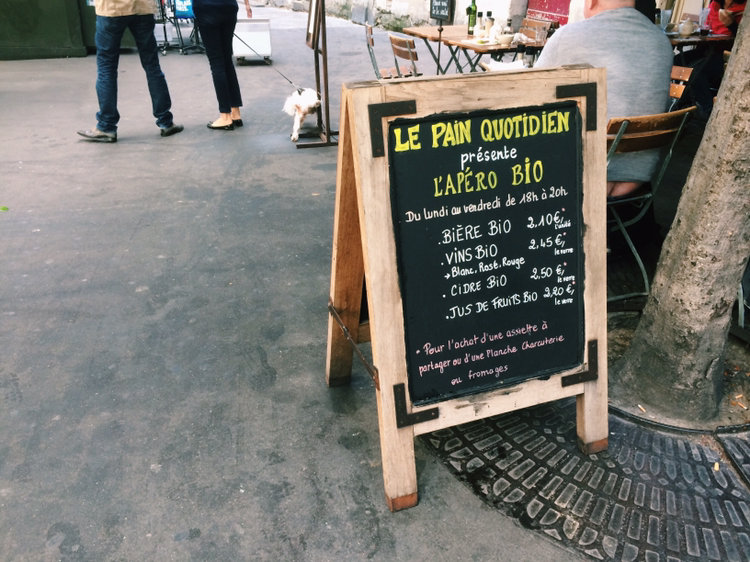 LE PAIN QUOTIDIEN
présente
L'APÉRO BIO
Du lundi au vendredi de 18h à 20h
. BIÈRE BIO 2,10€,* l'unité
. VINS BIO 2,45€,* le verre
→ Blanc, Rosé, Rouge
. CIDRE BIO 2,50€,* le verre
. JUS DE FRUITS BIO 2,20€,* le verre
* Pour l'achat d'une assiette à
partager ou d'une Planche Charcuterie
ou fromages